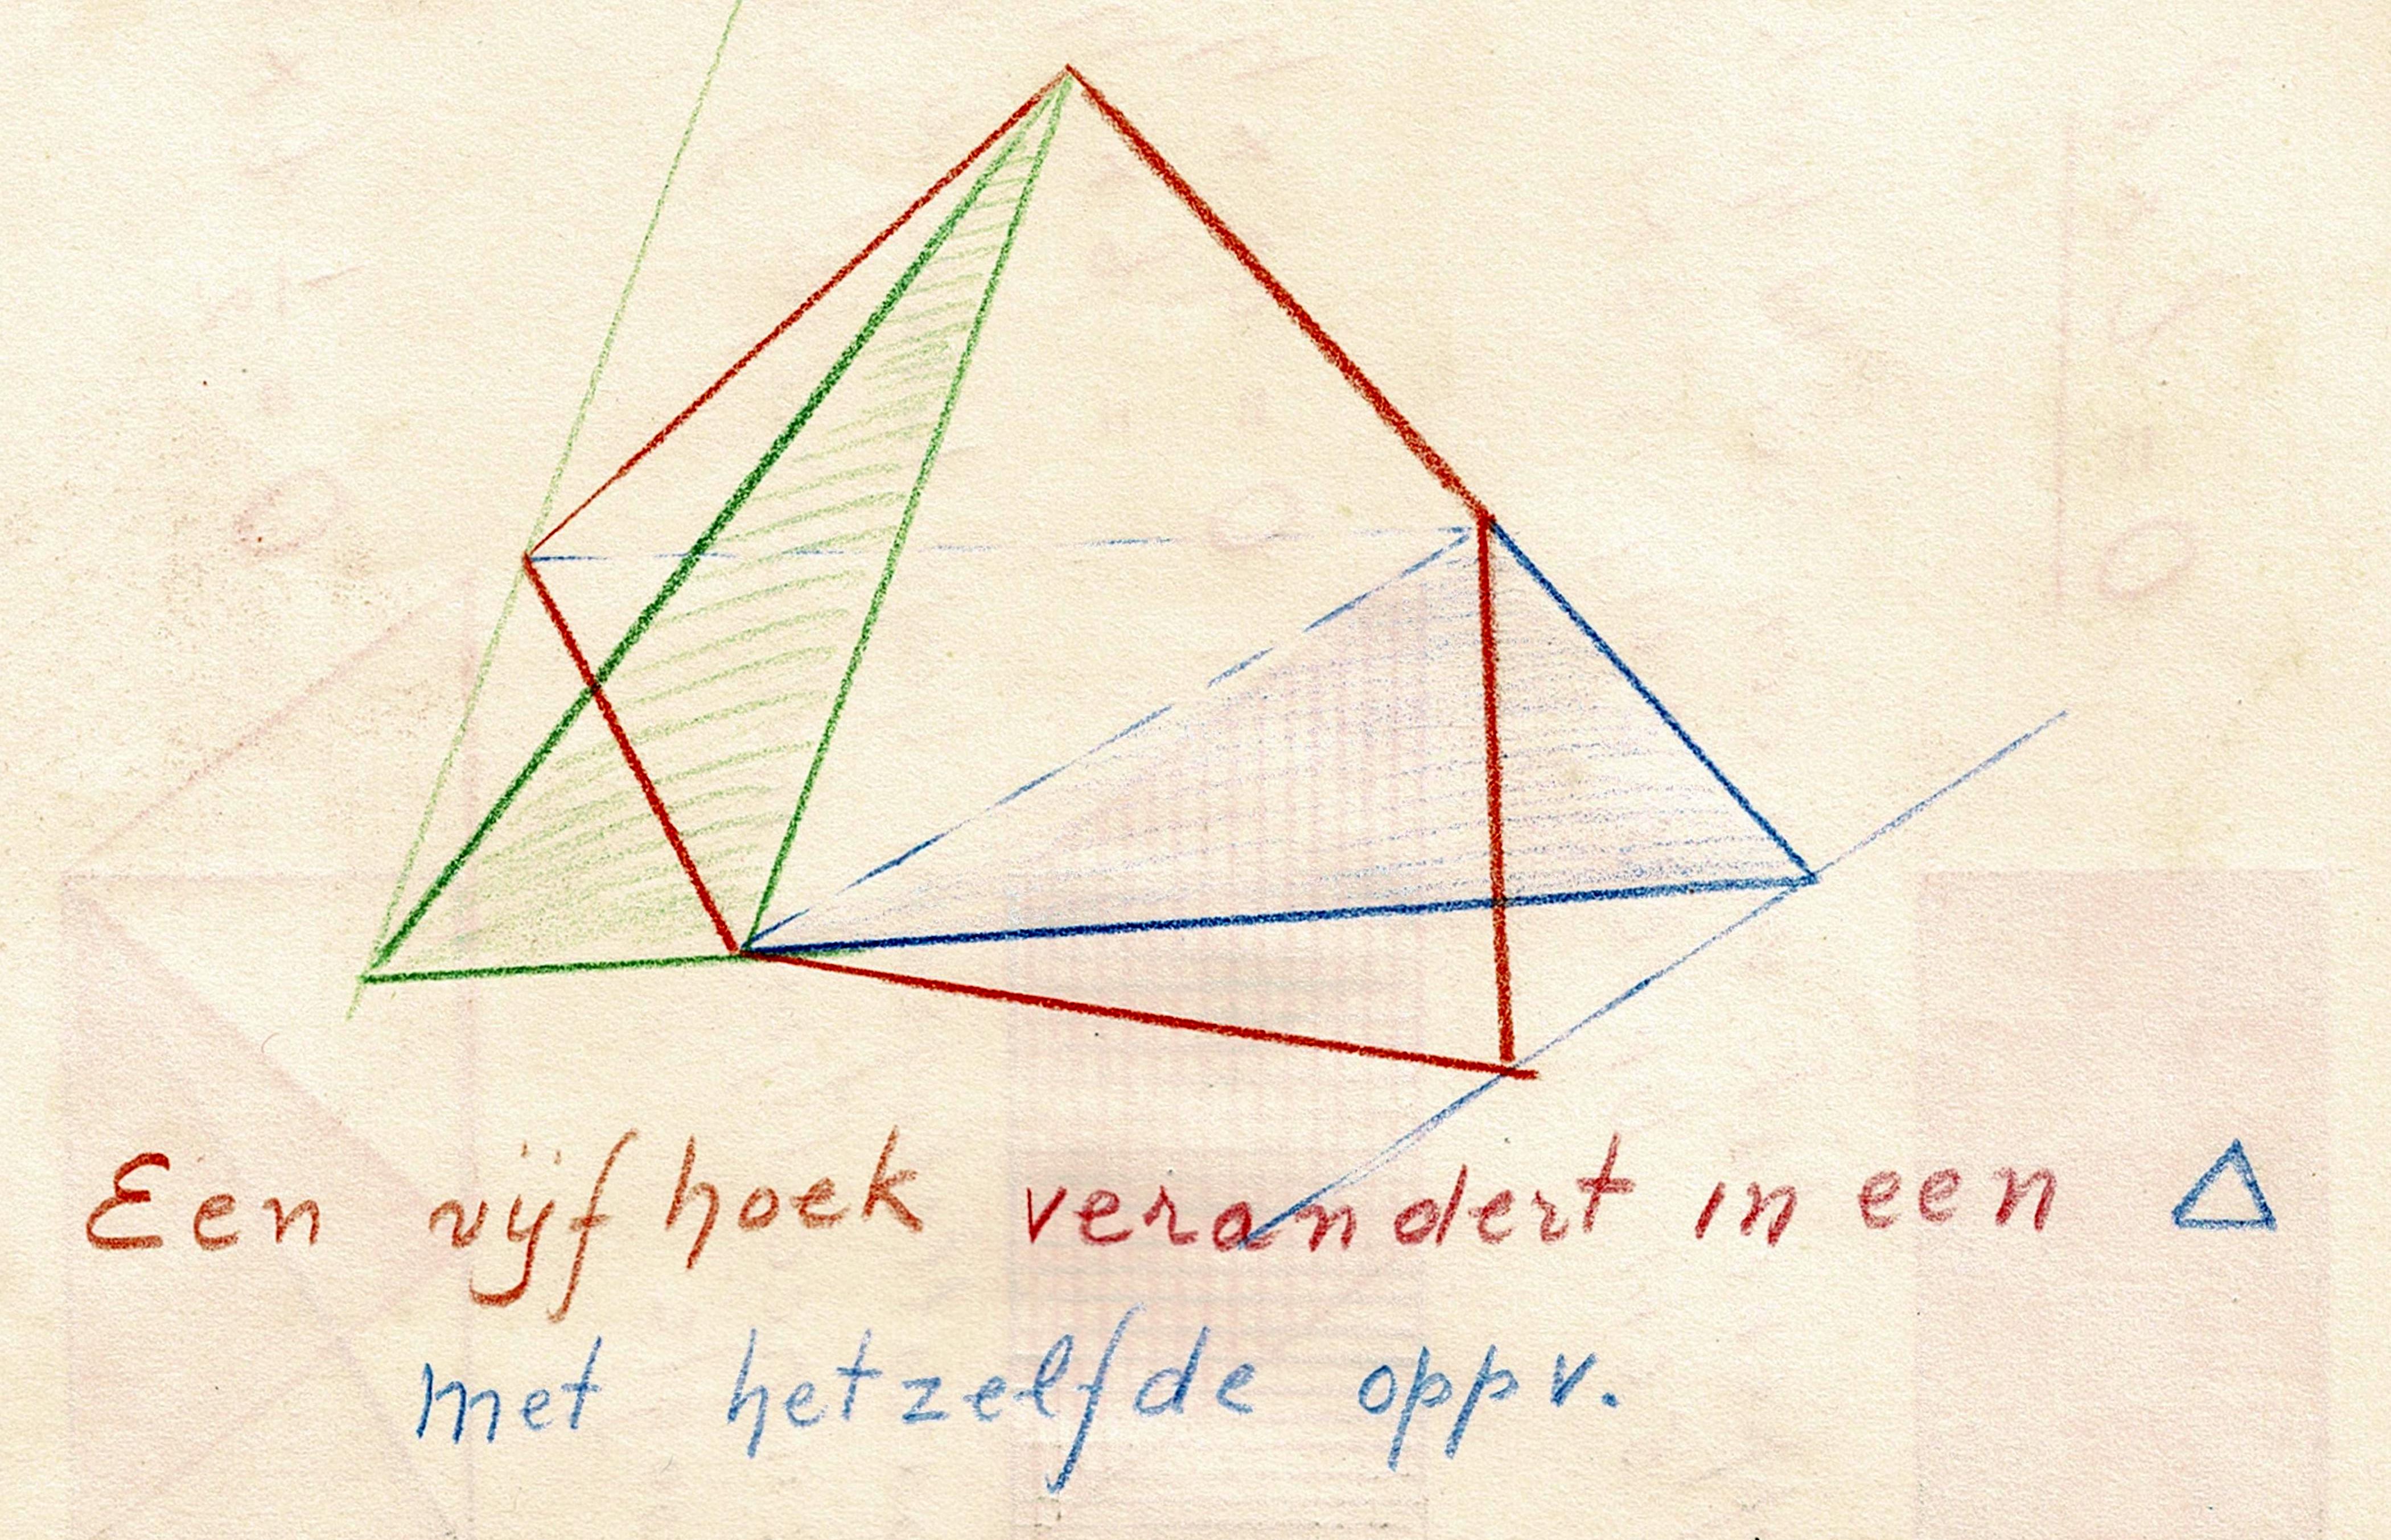 Een vijfhoek verandert in een Δ
met hetzelfde oppv.